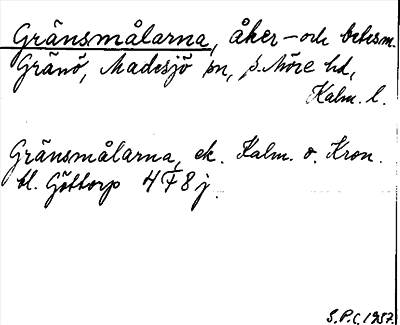 Gränsmålarna, åker- och betesm.
Gränö, Madesjö sn, S. Möre hd,
Kalm. l.
Gränsmålarna, ek. Kalm. o. Kron.
bl. Göttorp 4F8j.
S.P.C. 1957.